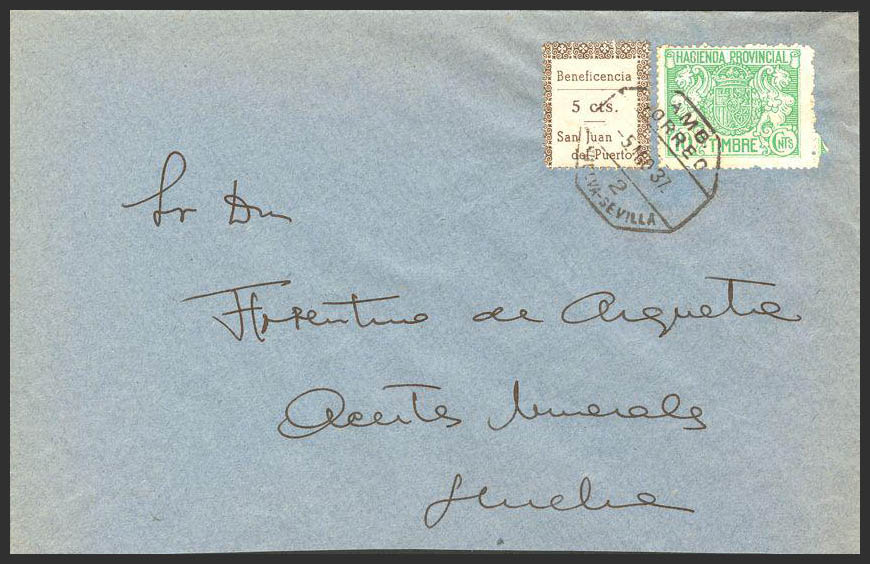 Beneficencia
5 cts.
San Juan
del Puerto
HACIENDA PROVINCIAL
TIMBRE
CNTS
AMB.
CORREO
2
-SEVILLA
Sr Dn
Florentino de Azqueta
Aceites Minerales
Huelva